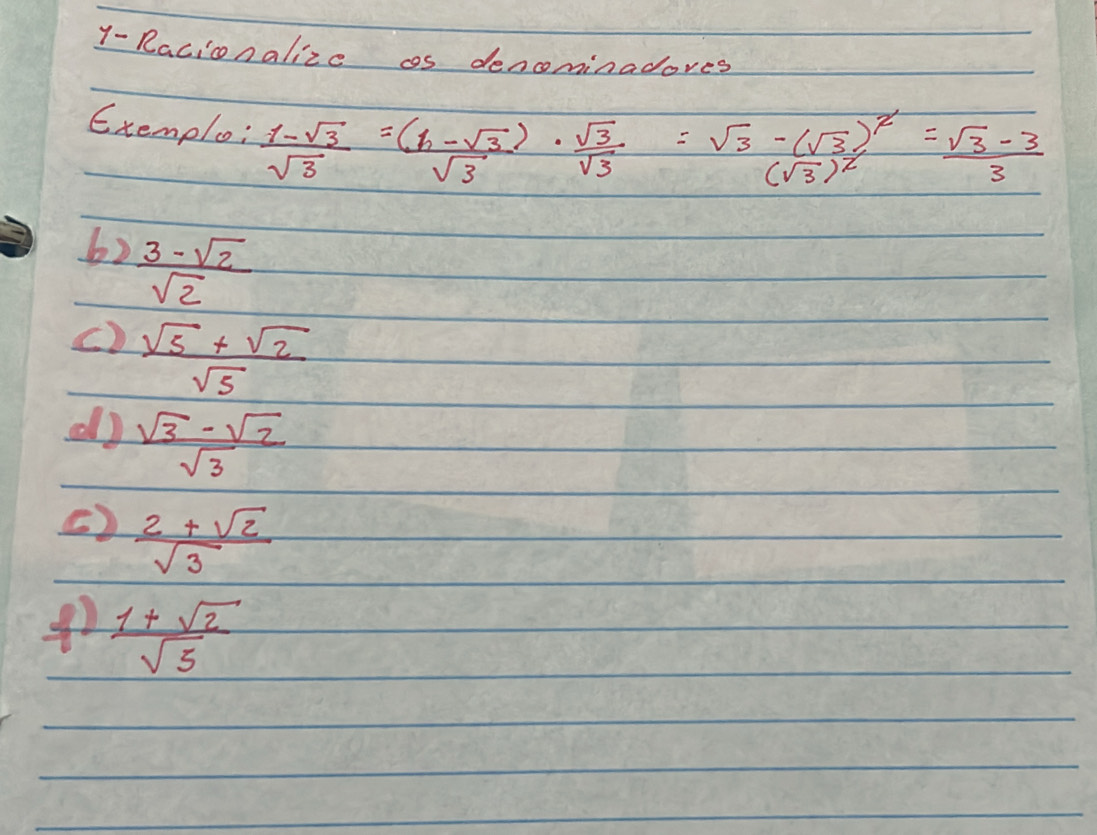 1-Racionalize os denominadores
Exemplo: (1-√3)/√3 = (1-√3)/√3 · √3/√3 = (√3 - (√3)²)/(√3)² = (√3 - 3)/3
b) (3 - √2)/√2
c) (√5 + √2)/√5
d) (√3 - √2)/√3
e) (2 + √2)/√3
f) (1 + √2)/√5